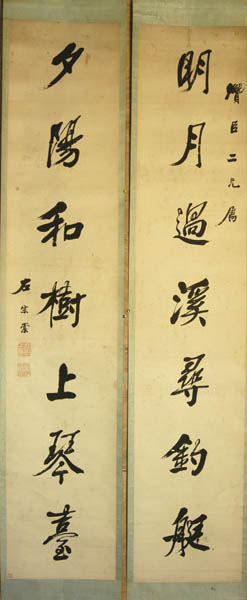 明月過溪尋釣艇
臣二兄屬
夕陽和樹上琴臺
左宗棠